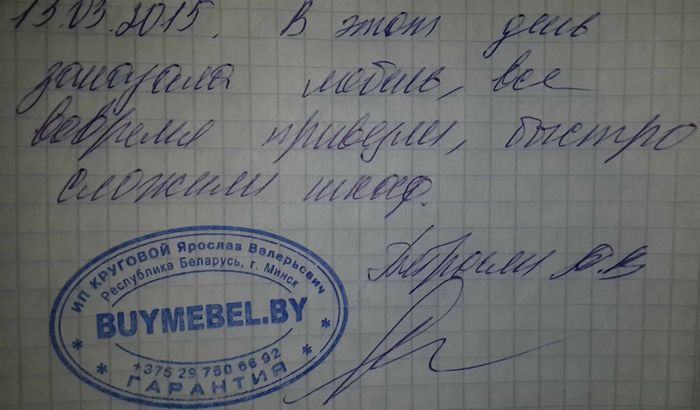 13.03.2015. В этот день
заказала мебель, все
вовремя привезли, быстро
сложили шкаф.
ИП КРУГОВОЙ Ярослав Валерьевич
Республика Беларусь, г. Минск
BUYMEBEL.BY
+375 29 760 66 92
ГАРАНТИЯ